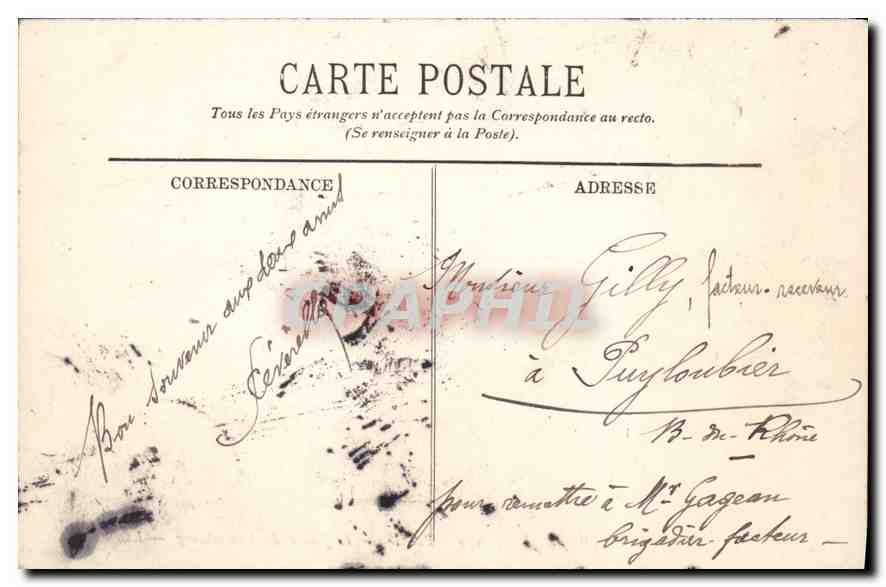 CARTE POSTALE
Tous les Pays étrangers n'acceptent pas la Correspondance au recto.
(Se renseigner à la Poste).
CORRESPONDANCE
ADRESSE
Bon souvenir aux deux amis
Monsieur Gilly, facteur-receveur
à Puyloubier
B-du-Rhône
pour remettre à Mr Gageau
brigadier-facteur
CPAPHIL